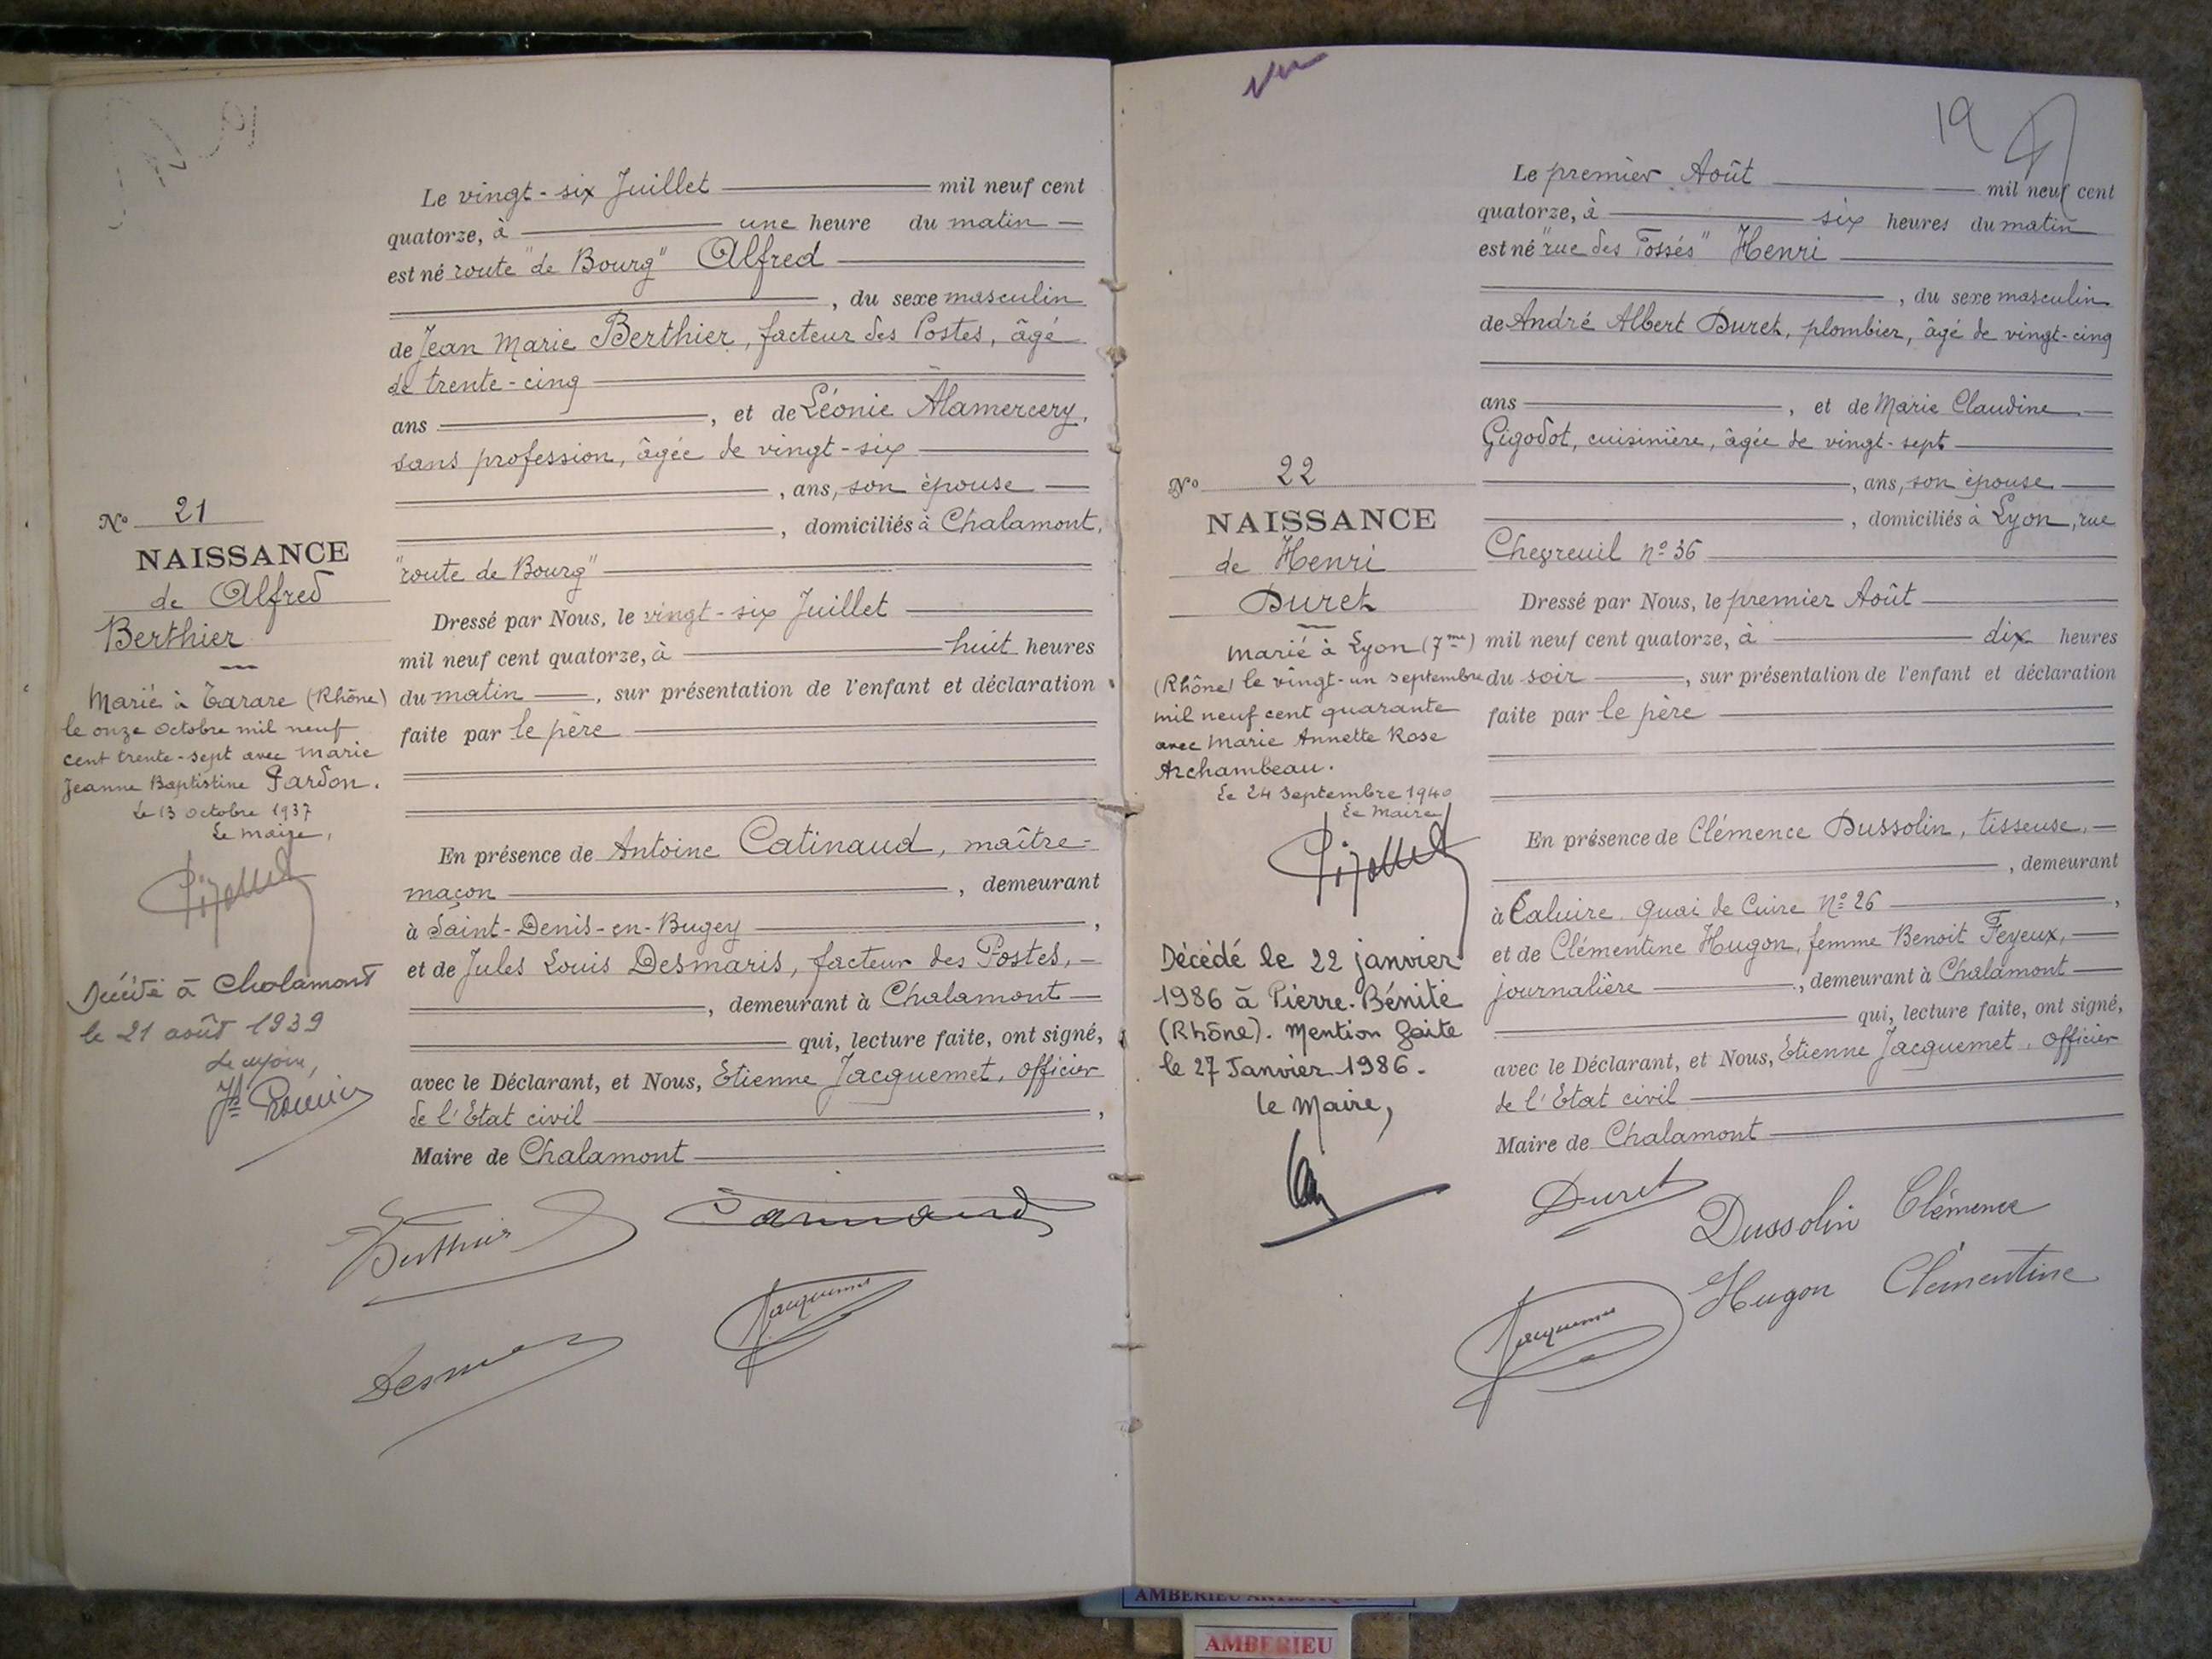 Le vingt-six Juillet mil neuf cent
quatorze, à une heure du matin
est né route "de Bourg" Alfred
, du sexe masculin
de Jean Marie Berthier, facteur des Postes, âgé
de trente-cinq
ans , et de Léonie Alamercery,
sans profession, âgée de vingt-six
, ans, son épouse
, domiciliés à Chalamont,
"route de Bourg"
Dressé par Nous, le vingt-six Juillet
mil neuf cent quatorze, à huit heures
du matin , sur présentation de l'enfant et déclaration
faite par le père
En présence de Antoine Catinaud, maître-
maçon , demeurant
à Saint-Denis-en-Bugey ,
et de Jules Louis Desmaris, facteur des Postes,
, demeurant à Chalamont
qui, lecture faite, ont signé,
avec le Déclarant, et Nous, Etienne Jacquemet, officier
de l'Etat civil ,
Maire de Chalamont
Berthier
Catinaud
Jacquemet
N° 21
NAISSANCE
de Alfred
Berthier
Marié à Tarare (Rhône)
le onze Octobre mil neuf
cent trente-sept avec Marie
Jeanne Baptistine Pardon.
Le 13 octobre 1937
Le maire,
Décédé à Chalamont
le 21 août 1939
Vu
19
Le premier Août mil neuf cent
quatorze, à six heures du matin
est né "rue des Fossés" Henri
, du sexe masculin
de André Albert Duret, plombier, âgé de vingt-cinq
ans , et de Marie Claudine
Gigodot, cuisinière, âgée de vingt-sept
, ans, son épouse
, domiciliés à Lyon, rue
Chevreuil n° 36
Dressé par Nous, le premier Août
mil neuf cent quatorze, à dix heures
du soir , sur présentation de l'enfant et déclaration
faite par le père
En présence de Clémence Dussolin, tisseuse,
, demeurant
à Caluire, Quai de Cuire N° 26 ,
et de Clémentine Hugon, femme Benoit Feyeux,
journalière , demeurant à Chalamont
qui, lecture faite, ont signé,
avec le Déclarant, et Nous, Etienne Jacquemet, officier
de l'Etat civil
Maire de Chalamont
Duret
Dussolin Clémence
Hugon Clémentine
Jacquemet
N° 22
NAISSANCE
de Henri
Duret
Marié à Lyon (7me)
(Rhône) le vingt-un septembre
mil neuf cent quarante
avec Marie Annette Rose
Archambeau.
Le 24 septembre 1940
Le Maire
Décédé le 22 janvier
1986 à Pierre-Bénite
(Rhône). Mention faite
le 27 Janvier 1986.
le Maire,
AMBERIEU